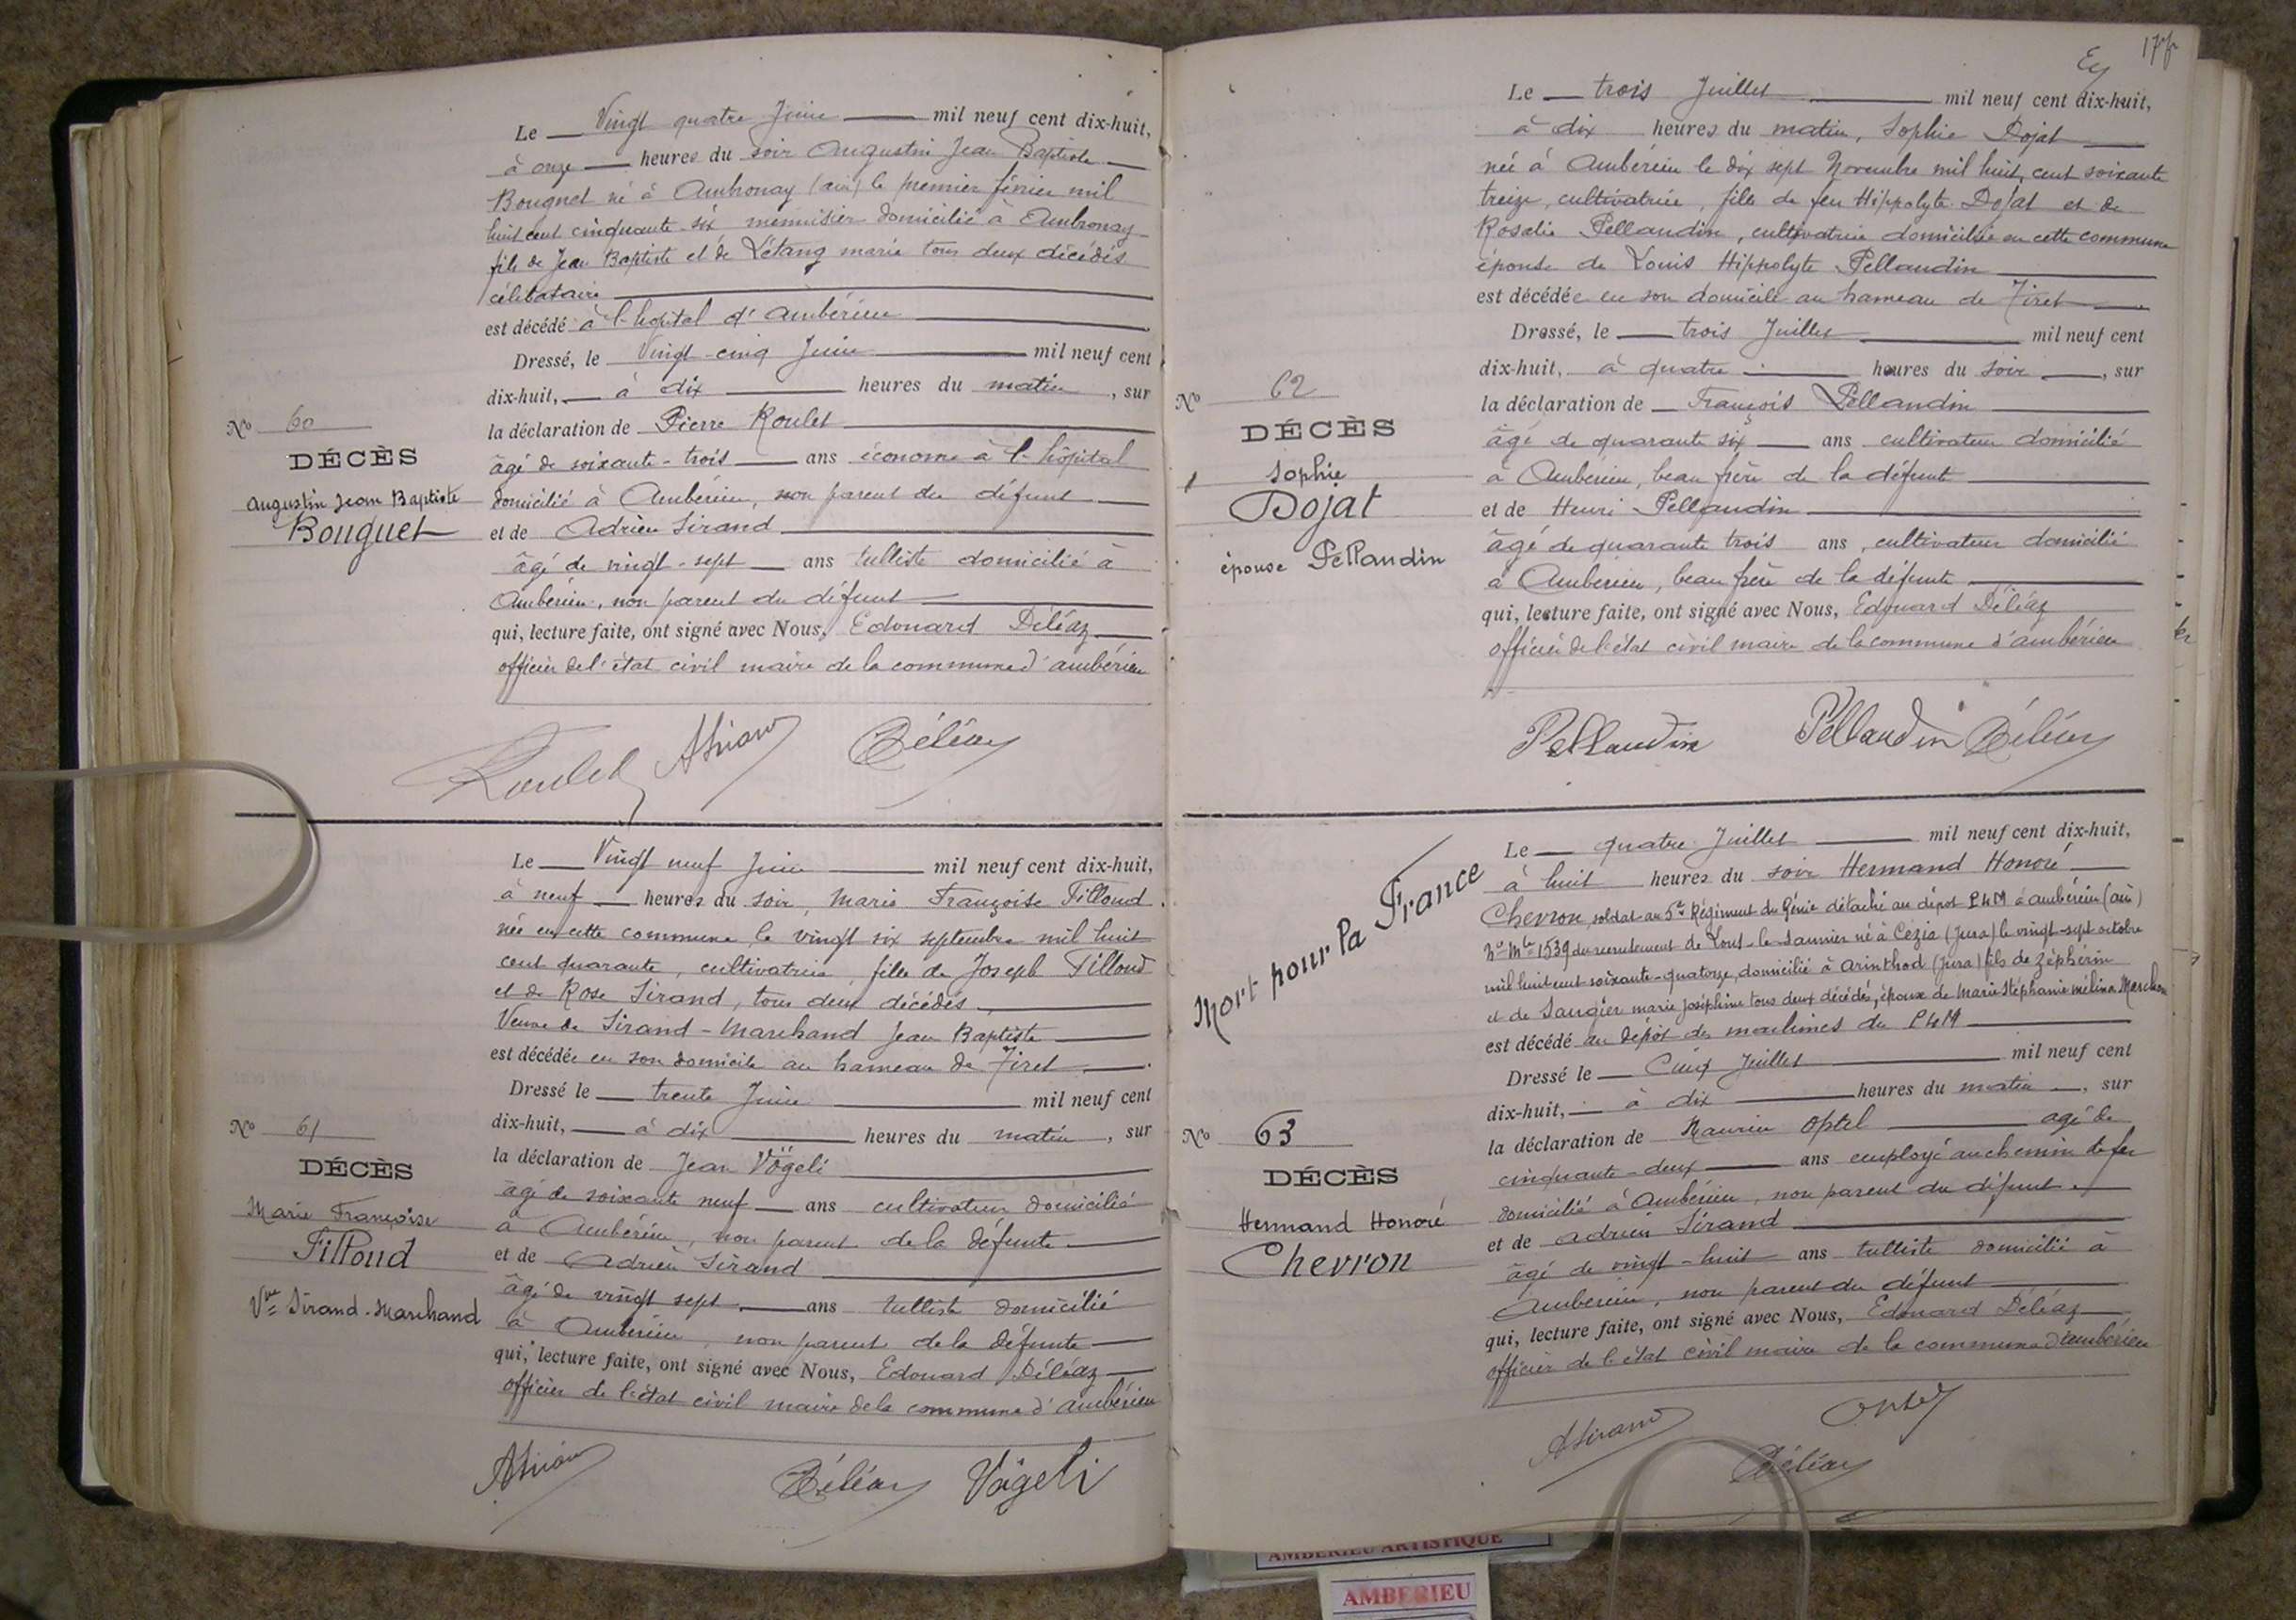 Le Vingt quatre Juin mil neuf cent dix-huit,
à onze heures du soir Augustin Jean Baptiste
Bouguet né à Ambronay (ain) le premier février mil
huit cent cinquante-six, menuisier domicilié à Ambronay
fils de Jean Baptiste et de Létang marie tous deux décédés
célibataire
est décédé à l'hopital d'ambérieu
Dressé, le Vingt-cinq Juin mil neuf cent
dix-huit, à dix heures du matin, sur
la déclaration de Pierre Roulet
âgé de soixante-trois ans économe à l'hôpital
domicilié à Ambérieu, non parent du défunt
et de Adrien Sirand
âgé de vingt-sept ans tulliste domicilié à
Ambérieu, non parent du défunt
qui, lecture faite, ont signé avec Nous, Edouard Déléaz
officier de l'état civil maire de la commune d'ambérieu
Nº 60
DÉCÈS
Augustin Jean Baptiste
Bouguet
Roulet ASirand Déléaz
Le Vingt neuf Juin mil neuf cent dix-huit,
à neuf heures du soir, Marie Françoise Tilloud
née en cette commune le vingt six septembre mil huit
cent quarante, cultivatrice, fille de Joseph Tilloud
et de Rose Sirand, tous deux décédés
Veuve de Sirand-Marchand Jean Baptiste
est décédée en son domicile au hameau de Tiret
Dressé le trente Juin mil neuf cent
dix-huit, à dix heures du matin, sur
la déclaration de Jean Vögeli
âgé de soixante neuf ans cultivateur domicilié
à Ambérieu, non parent de la défunte
et de Adrien Sirand
âgé de vingt sept ans tulliste domicilié
à Ambérieu, non parent de la défunte
qui, lecture faite, ont signé avec Nous, Edouard Déléaz
officier de l'état civil maire de la commune d'ambérieu
Nº 61
DÉCÈS
Marie Françoise
Tilloud
Vve Sirand-Marchand
ASirand Déléaz Vögeli
Le trois Juillet mil neuf cent dix-huit,
à dix heures du matin, Sophie Dojat
née à Ambérieu le dix sept Novembre mil huit cent soixante
treize, cultivatrice, fille de feu Hippolyte Dojat et de
Rosalie Pellaudin, cultivatrice domiciliée en cette commune
épouse de Louis Hippolyte Pellaudin
est décédée en son domicile au hameau de Tiret
Dressé, le trois Juillet mil neuf cent
dix-huit, à quatre heures du soir, sur
la déclaration de François Pellaudin
âgé de quarante six ans cultivateur domicilié
à Ambérieu, beau frère de la défunte
et de Henri Pellaudin
âgé de quarante trois ans, cultivateur domicilié
à Ambérieu, beau frère de la défunte
qui, lecture faite, ont signé avec Nous, Edouard Déléaz
officier de l'état civil maire de la commune d'ambérieu
Nº 62
DÉCÈS
Sophie
Dojat
épouse Pellaudin
Pellaudin Pellaudin Déléaz
Mort pour la France
Le quatre Juillet mil neuf cent dix-huit,
à huit heures du soir Hermand Honoré
Chevron, soldat au 5e Régiment du Génie détaché au dépôt PLM à ambérieu (ain)
Nº Mle 1539 du recrutement de Lons-le-Saunier né à Cézia (Jura) le vingt-sept octobre
mil huit cent soixante-quatorze, domicilié à Arinthod (Jura) fils de Zéphirin
et de Saugier marie joséphine tous deux décédés, époux de Marie Stéphanie mélina
est décédé au dépôt des machines du PLM
Dressé le Cinq Juillet mil neuf cent
dix-huit, à dix heures du matin, sur
la déclaration de Optel agé de
cinquante-deux ans employé au chemin de fer
domicilié à Ambérieu, non parent du défunt
et de Adrien Sirand
âgé de vingt-huit ans tulliste domicilié à
Ambérieu, non parent du défunt
qui, lecture faite, ont signé avec Nous, Edouard Déléaz
officier de l'état civil maire de la commune d'ambérieu
Nº 63
DÉCÈS
Hermand Honoré
Chevron
ASirand Optel
Déléaz
AMBERIEU ARTISTIQUE
AMBERIEU